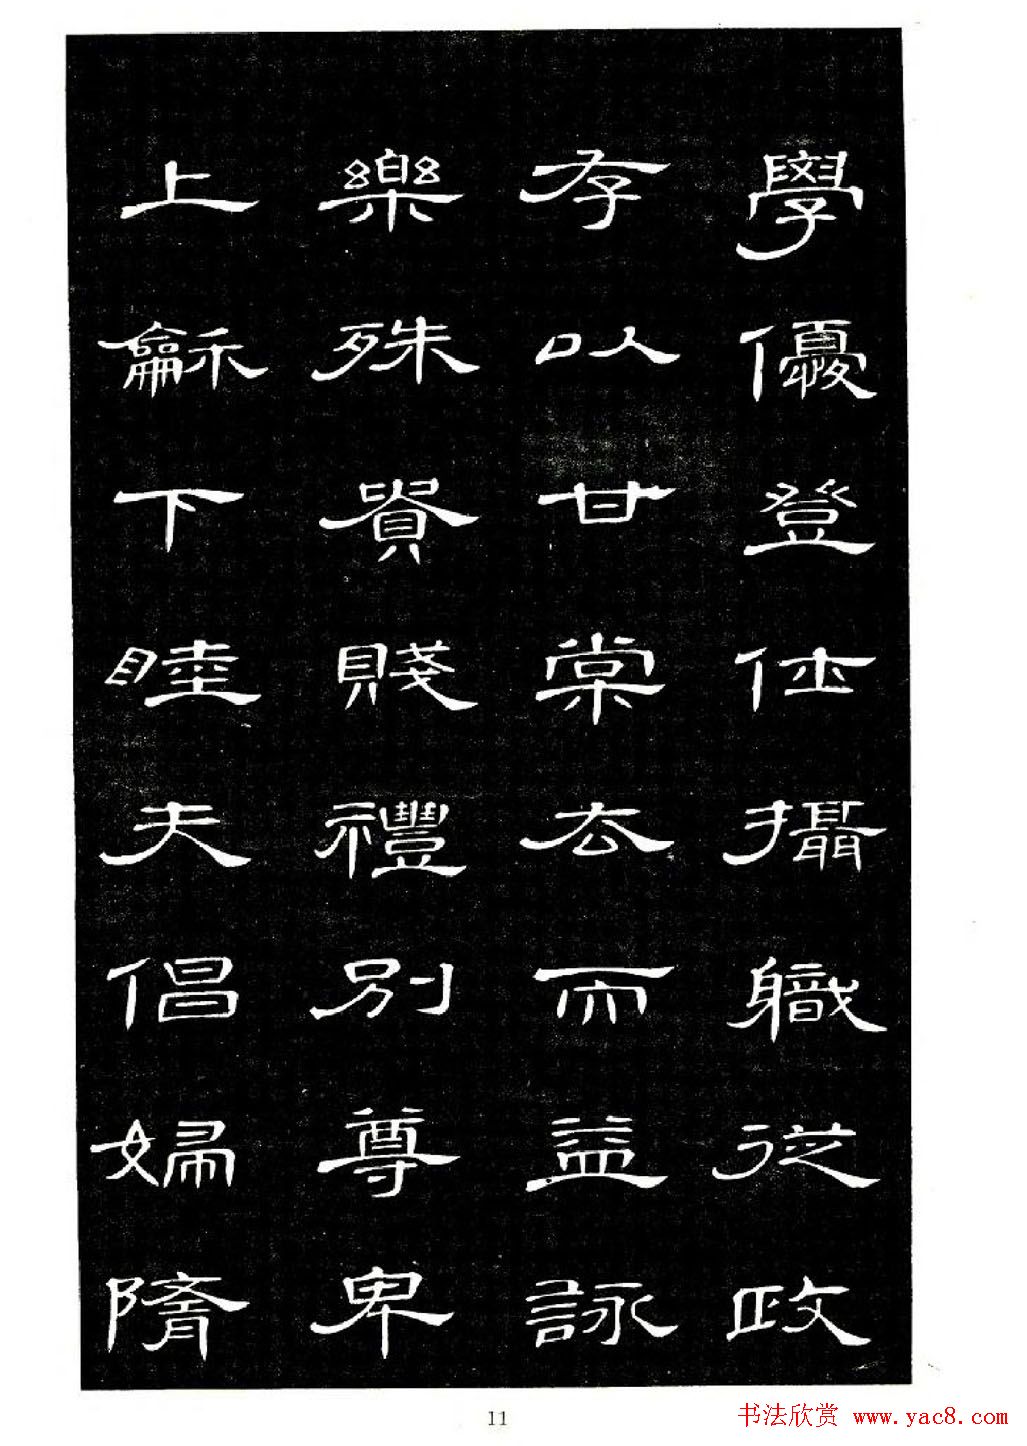 學優登仕攝職從政
存以甘棠去而益詠
樂殊貴賤禮別尊卑
上龢下睦夫倡婦隨
11
书法欣赏 www.yac8.com